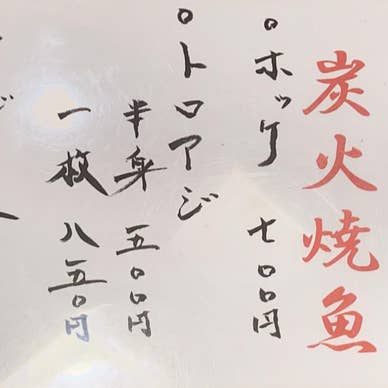 炭火焼魚
。ホッケ 七〇〇円
。トロアジ
半身 五〇〇円
一枚 八五〇円